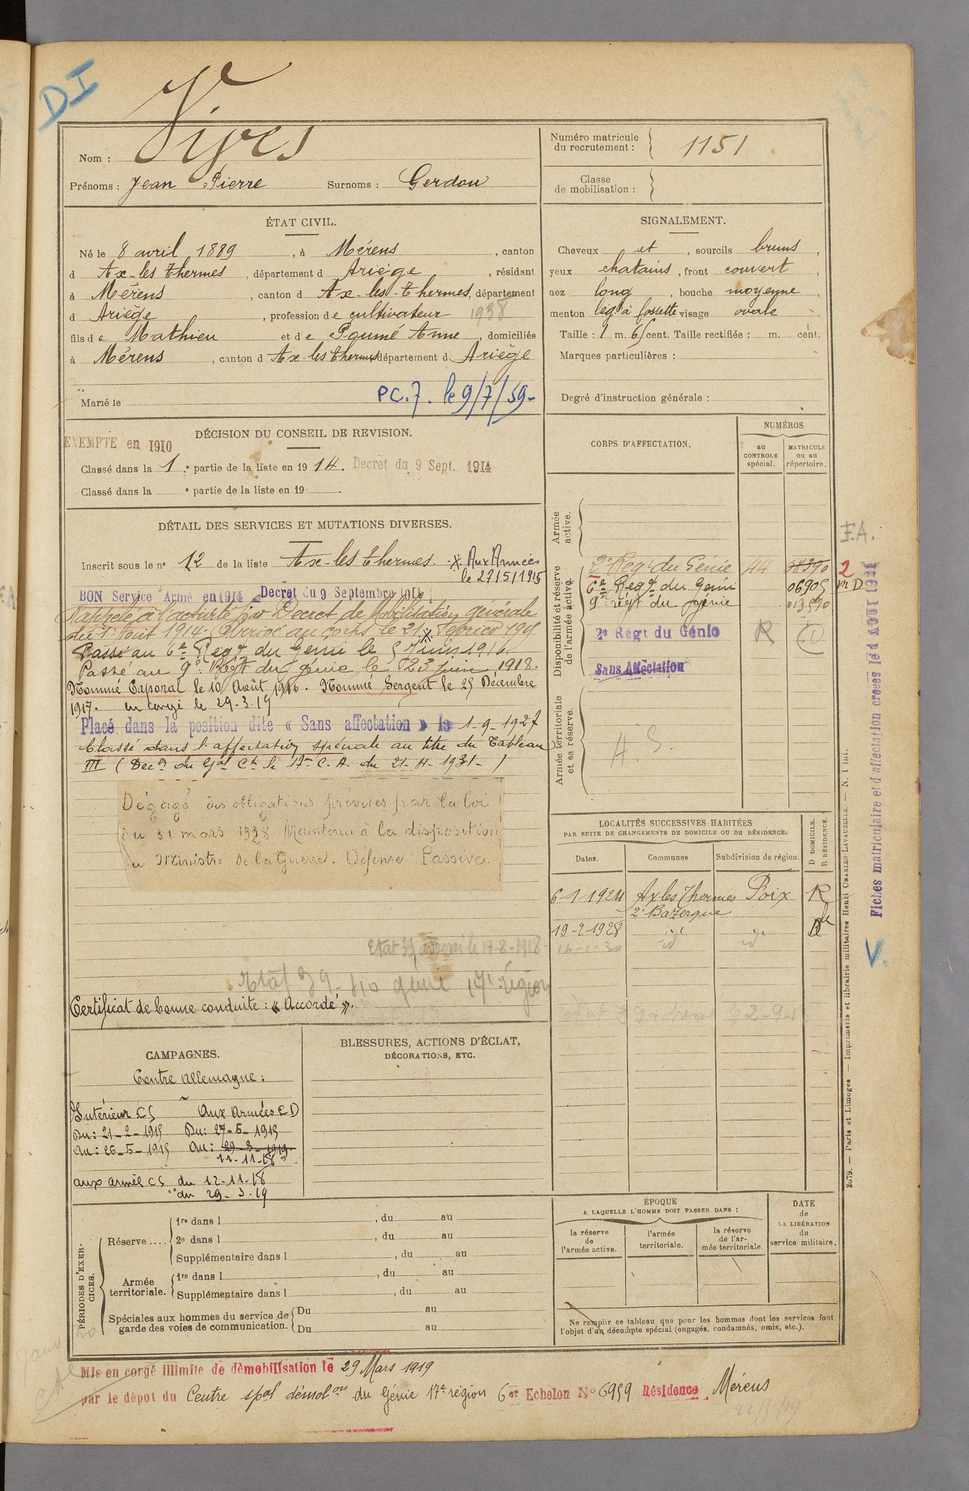 DI
Nom : Vives
Prénoms : Jean Pierre Surnoms : Gerdou
Numéro matricule du recrutement : 1151
Classe de mobilisation :
ÉTAT CIVIL.
Né le 8 avril 1889, à Mérens, canton
d Ax-les-thermes, département d Ariège, résidant
à Mérens, canton d Ax-les-thermes, département
d Ariège, profession de cultivateur 1938
fils de Mathieu et de Anne, domiciliés
à Mérens, canton d Ax les thermes département d Ariège
PC.7. le 9/7/59-
Marié le
SIGNALEMENT.
Cheveux et, sourcils bruns,
yeux chatains, front couvert
nez long, bouche moyenne,
menton à fossette visage ovale
Taille : 1 m. 65 cent. Taille rectifiée : m. cent.
Marques particulières :
Degré d'instruction générale :
DÉCISION DU CONSEIL DE REVISION.
EXEMPTÉ en 1910
Classé dans la 1re partie de la liste en 1914. Decret du 9 Sept. 1914
Classé dans la e partie de la liste en 19 .
DÉTAIL DES SERVICES ET MUTATIONS DIVERSES.
Inscrit sous le n° 12 de la liste Ax-les thermes. x Aux Armées
le 27/5/1915
BON Service Armé en 1914 Decret du 9 Septembre 1914
Rappelé à l'activité par Décret de Mobilisation générale
du 1er Août 1914. Arrivé au corps le 21 Février 1915
Passé au 6e Régt du Génie le 5 Juin 1916.
Passé au 9e Régt du génie le 23 Juin 1918.
Nommé Caporal le 10 Août 1916. Nommé Sergent le 25 Décembre
1917. en congé le 29-3-19
Placé dans la position dite « Sans affectation » le 1-9-1927
Classé dans l'affectation spéciale au titre du Tableau
III (Decon du Gal Ct le 17e C.A. du 21-4-1931-)
Dégagé des obligations prévues par la loi
du 31 mars 1928 Maintenu à la disposition
du Ministre de la Guerre. Défense Passive.
Certificat de bonne conduite : « Accordé ».
CORPS D'AFFECTATION.
NUMÉROS
au CONTROLE spécial.
MATRICULE ou au répertoire.
Armée active.
Disponibilité et réserve de l'armée active.
2e Reg. du Génie
6e Régt du Génie 06905
9e régt du génie
2e Régt du Génie R
Sans Affectation
Armée territoriale et sa réserve.
F.A.
2
Fiches matriculaire et d'affectation créées le 1 AOUT 1921
V.
LOCALITÉS SUCCESSIVES HABITÉES
PAR SUITE DE CHANGEMENTS DE DOMICILE OU DE RÉSIDENCE.
Dates. Communes Subdivision de région. D DOMICILE. R RÉSIDENCE.
6-1-1924 Ax les Thermes Foix R
19-2-1928 id id
CAMPAGNES.
Contre allemagne :
Intérieur CS Aux armées CD
Du : 21-2-1915 Du : 27-5-1915
Au : 26-5-1915 Au : 29-3-1919
11-11-18
aux armées CS du 12-11-18
au 29-3-19
BLESSURES, ACTIONS D'ÉCLAT,
DÉCORATIONS, ETC.
PÉRIODES D'EXERCICES.
Réserve....
1re dans l , du au
2e dans l , du au
Supplémentaire dans l , du au
Armée territoriale.
1re dans l , du au
Supplémentaire dans l , du au
Spéciales aux hommes du service de garde des voies de communication.
Du au
Du au
ÉPOQUE
A LAQUELLE L'HOMME DOIT PASSER DANS :
la réserve de l'armée active.
l'armée territoriale.
la réserve de l'armée territoriale.
DATE de LA LIBÉRATION du service militaire.
Ne remplir ce tableau que pour les hommes dont les services font
l'objet d'un décompte spécial (engagés, condamnés, omis, etc.).
2679. — Paris et Limoges — Imprimerie et librairie militaires Henri CHARLES-LAVAUZELLE. — N. 1 int.
Mis en congé illimité de démobilisation le 29 Mars 1919
par le dépôt du Centre spal démobon du Génie 17e région 6er Echelon No 6959 Résidence Mérens